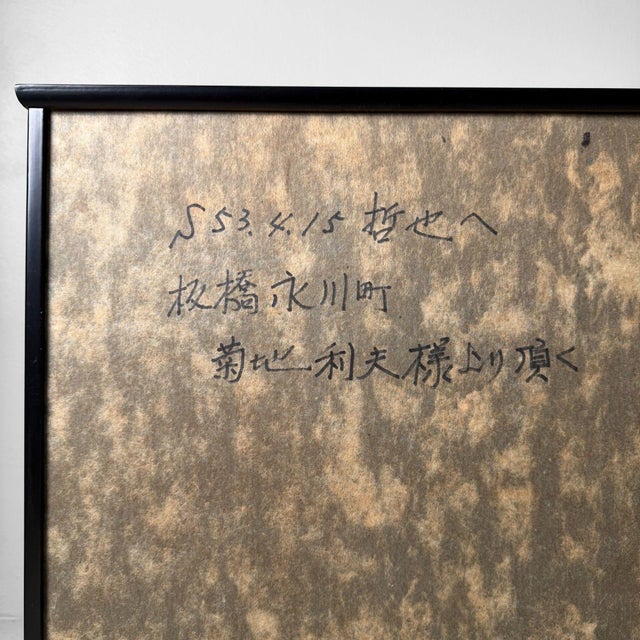 S53.4.15 哲也へ
板橋氷川町
菊地利夫様より頂く